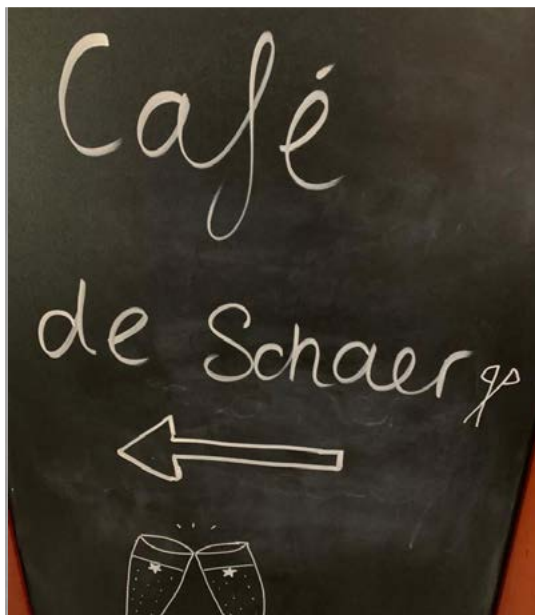 Café
de Schaer